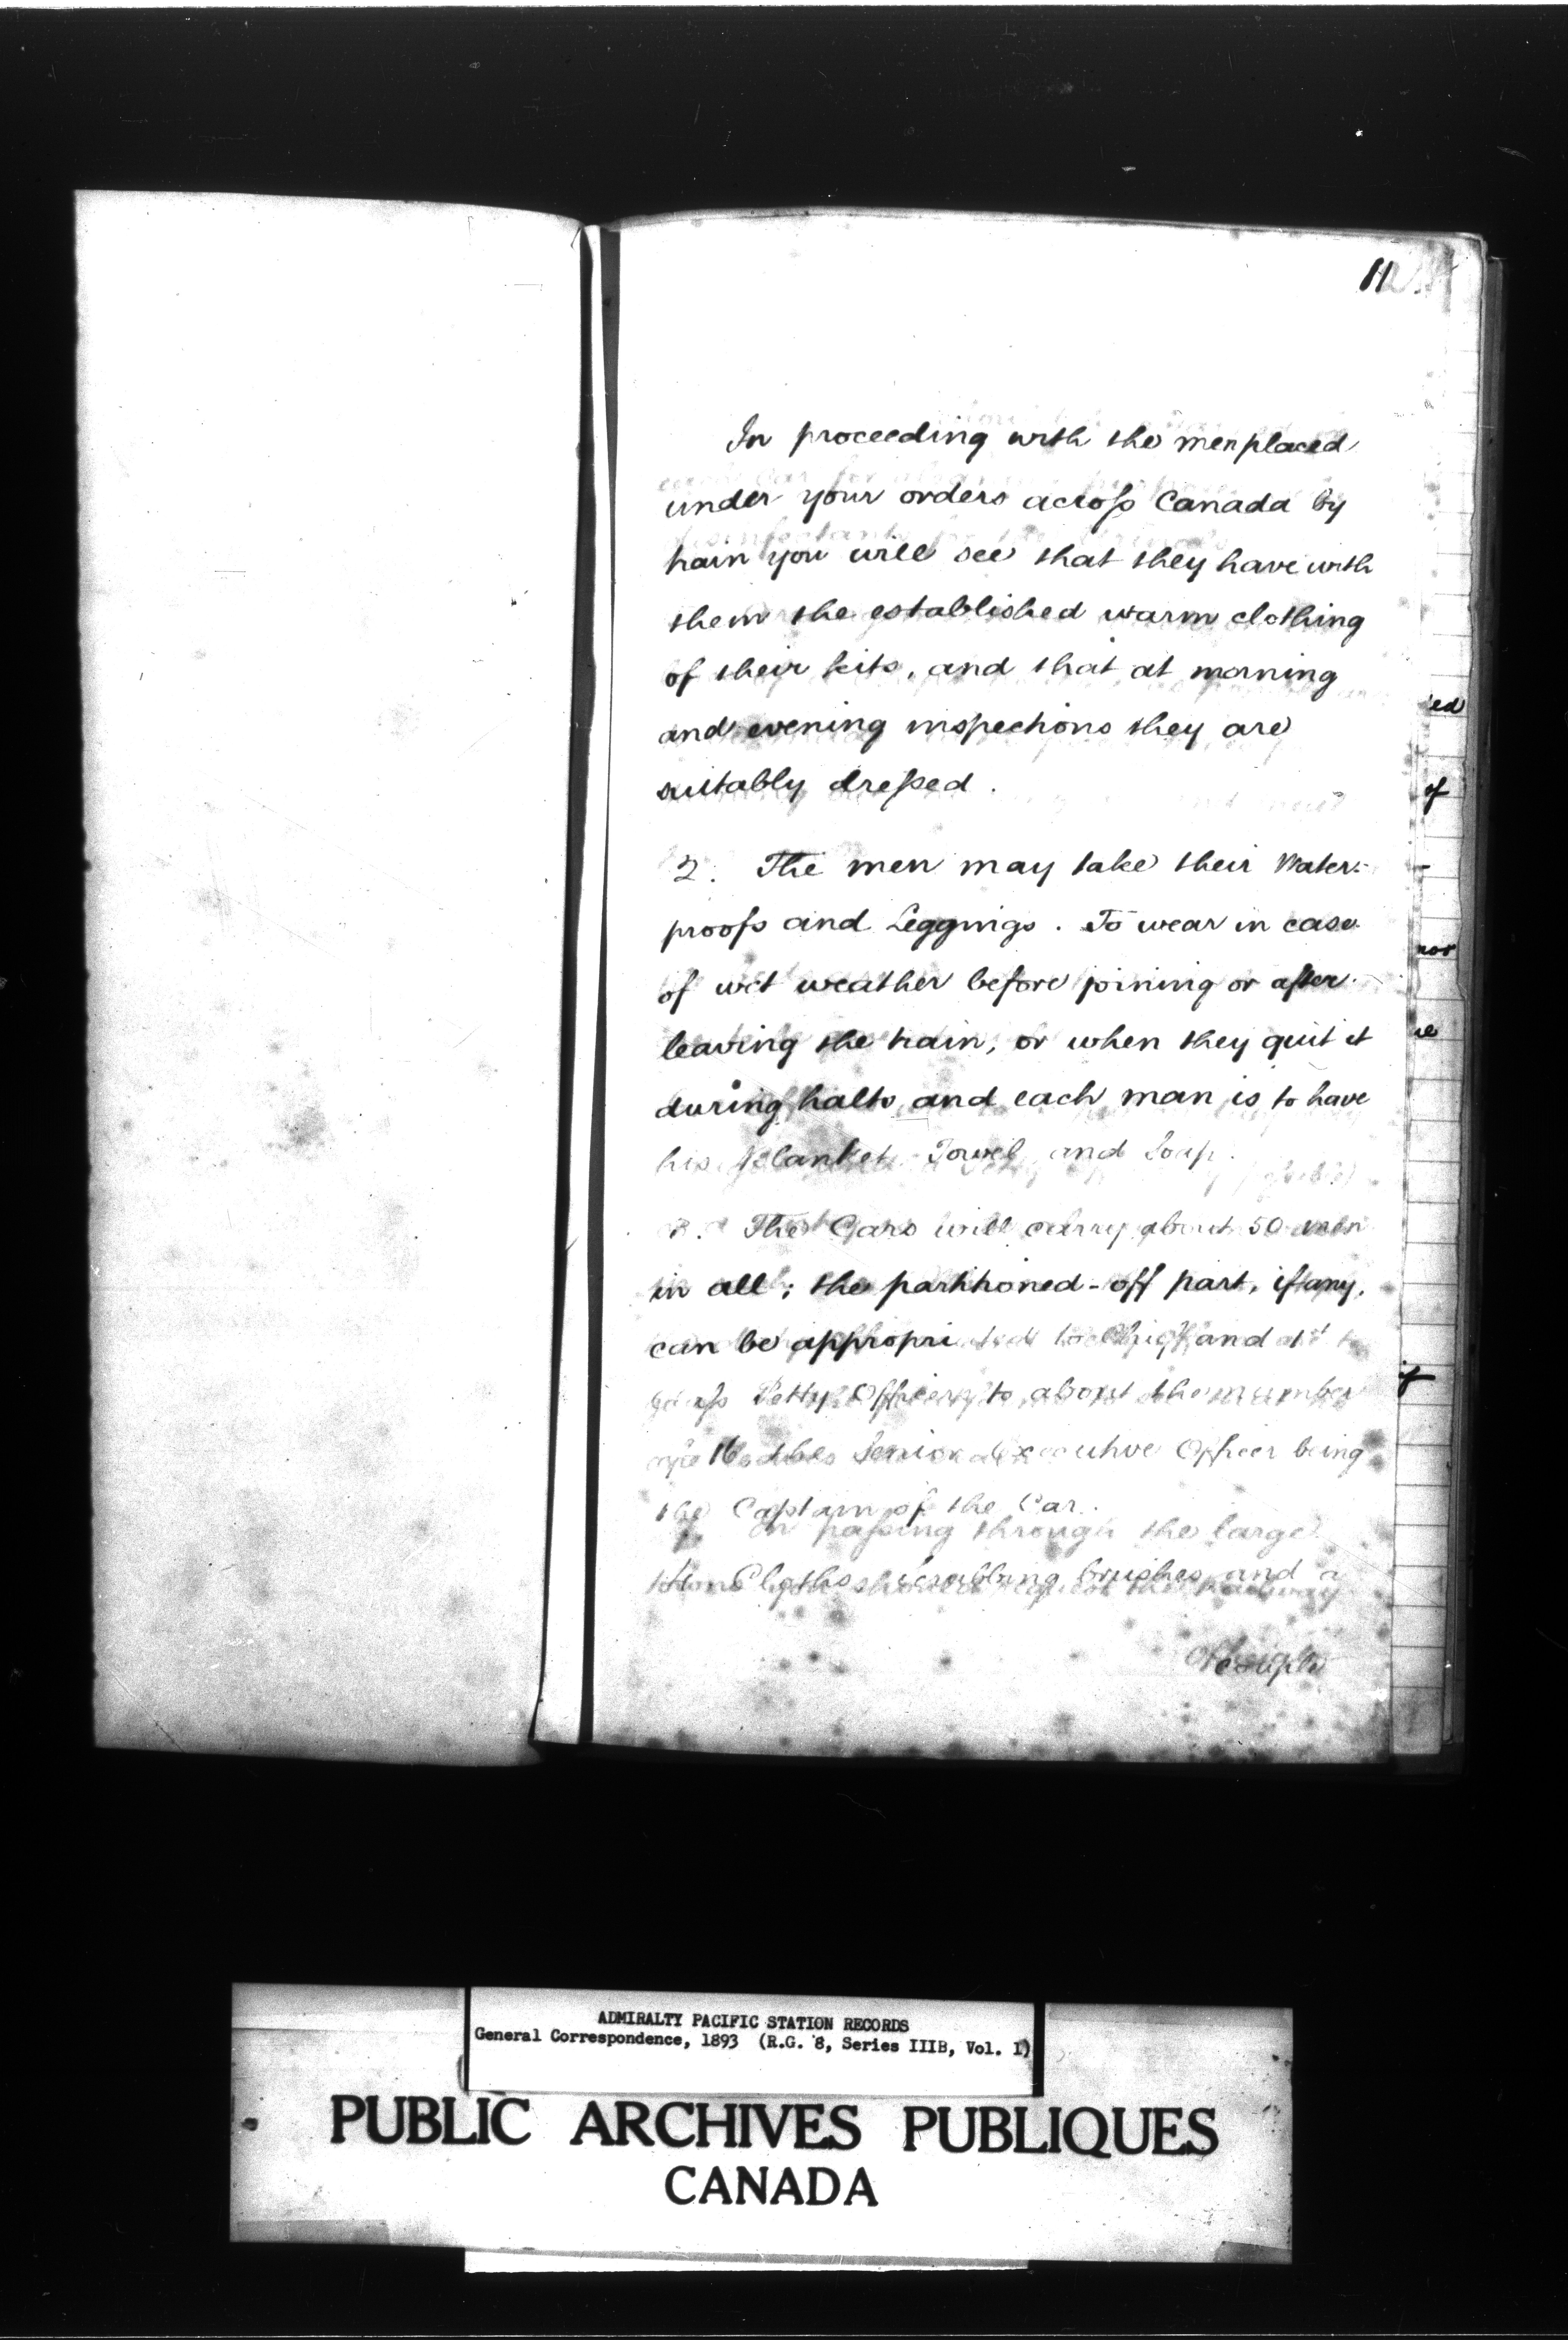 11
In proceeding with the men placed
under your orders acroſs Canada by
train you will see that they have with
them the established warm clothing
of their kits, and that at morning
and evening inspections they are
suitably dreſsed.
2. The men may take their Water-
proofs and Leggings. To wear in case
of wet weather before joining or after
leaving the train, or when they quit it
during halts and each man is to have
his blanket Towel and Soap.
3. The Cars will carry about 50 men
in all; the partitioned-off part, if any,
can be appropriated to Chief and 1st
Petty Officers to about the number
16 the Senior Executive Officer being
the Captain of the Car.
In paſsing through the large
4. Cloths scrubbing brushes and a
couple
ed
of
nor
if
ADMIRALTY PACIFIC STATION RECORDS
General Correspondence, 1893 (R.G. 8, Series IIIB, Vol. 1)
PUBLIC ARCHIVES PUBLIQUES
CANADA